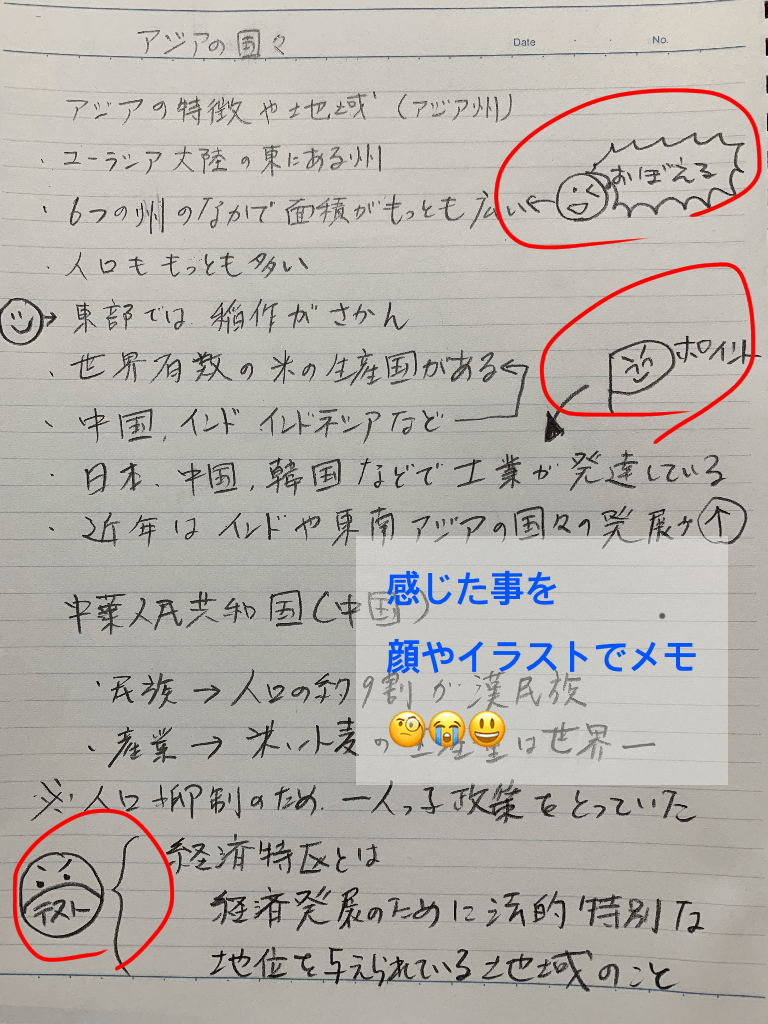 アジアの国々
Date ・ ・ No.
アジアの特徴や地域(アジア州)
・ユーラシア大陸の東にある州
・6つの州のなかで面積がもっとも広い←
おぼえる
・人口ももっとも多い
→東部では稲作がさかん
・世界有数の米の生産国がある
ポイント
・中国、インド インドネシアなど
・日本、中国、韓国などで工業が発達している
・近年はインドや東南アジアの国々の発展が↑
感じた事を
中華人民共和国(中国)
顔やイラストでメモ
・民族→人口の約9割が漢民族
🧐😭😃
・産業→米、小麦の生産量は世界一
※人口抑制のため、一人っ子政策をとっていた
テスト
経済特区とは
経済発展のために法的特別な
地位を与えられている地域のこと